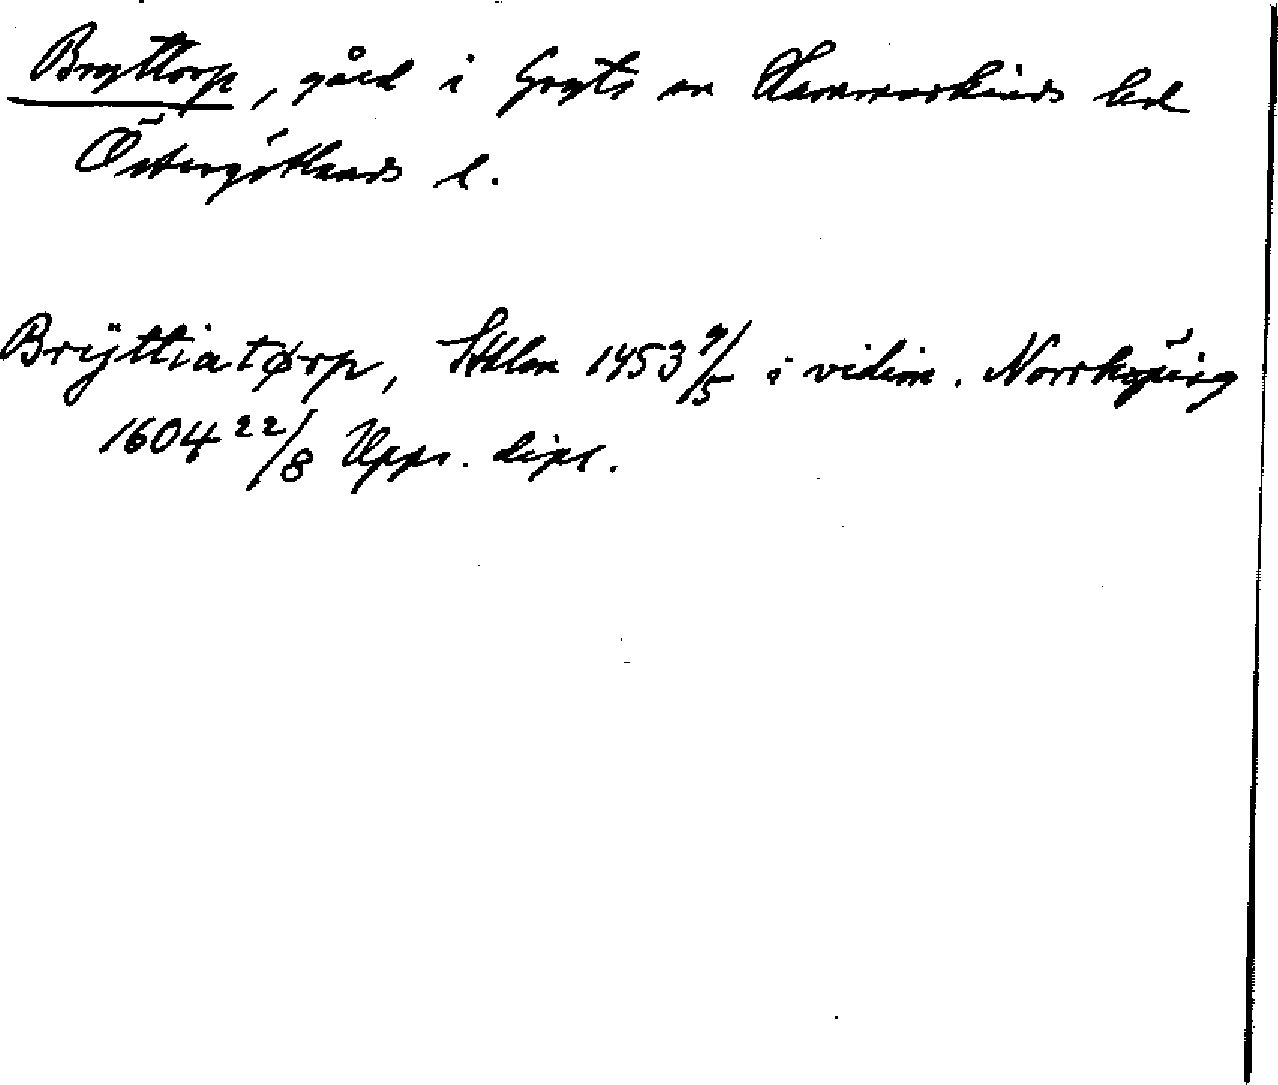 Bryttorp, gård i Gryts sn Hammarkinds hd
Östergötlands l.
Brÿttiatørp, Sthlm 1453 9/5 i vidim. Norrköping
1604 22/8 Upps. dipl.